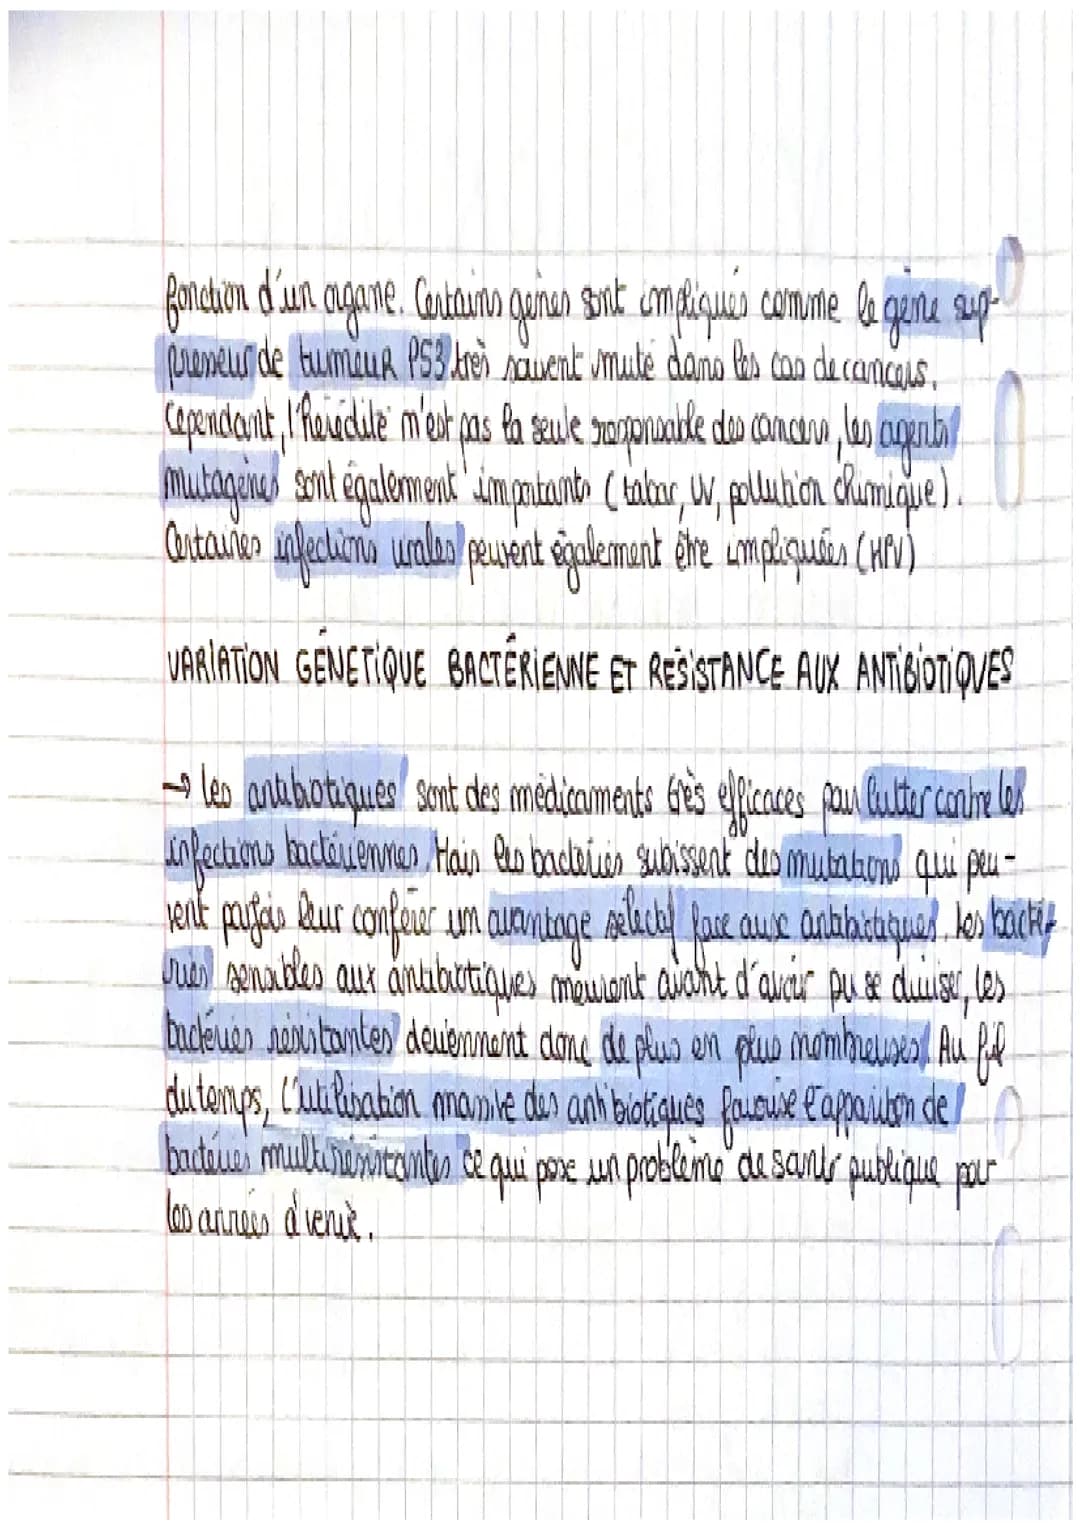 fonction d'un organe. Certains gènes sont impliqués comme le gène sup-
presseur de tumeur P53 très souvent muté dans les cas de cancers.
Cependant, l'hérédité n'est pas la seule responsable des cancers, les agents
mutagènes sont également importants (tabac, UV, pollution chimique).
Certaines infections virales peuvent également être impliquées (HPV)
VARIATION GÉNETIQUE BACTÉRIENNE ET RÉSISTANCE AUX ANTIBIOTIQUES
→ les antibiotiques sont des médicaments très efficaces pour lutter contre les
infections bactériennes. Mais les bactéries subissent des mutations qui peu-
vent parfois leur conférer un avantage sélectif face aux antibiotiques. Les bacté-
ries sensibles aux antibiotiques meurent avant d'avoir pu se diviser, les
bactéries résistantes deviennent donc de plus en plus nombreuses. Au fil
du temps, l'utilisation massive des antibiotiques favorise l'apparition de
bactéries multirésistantes ce qui pose un problème de santé publique pour
les années à venir.